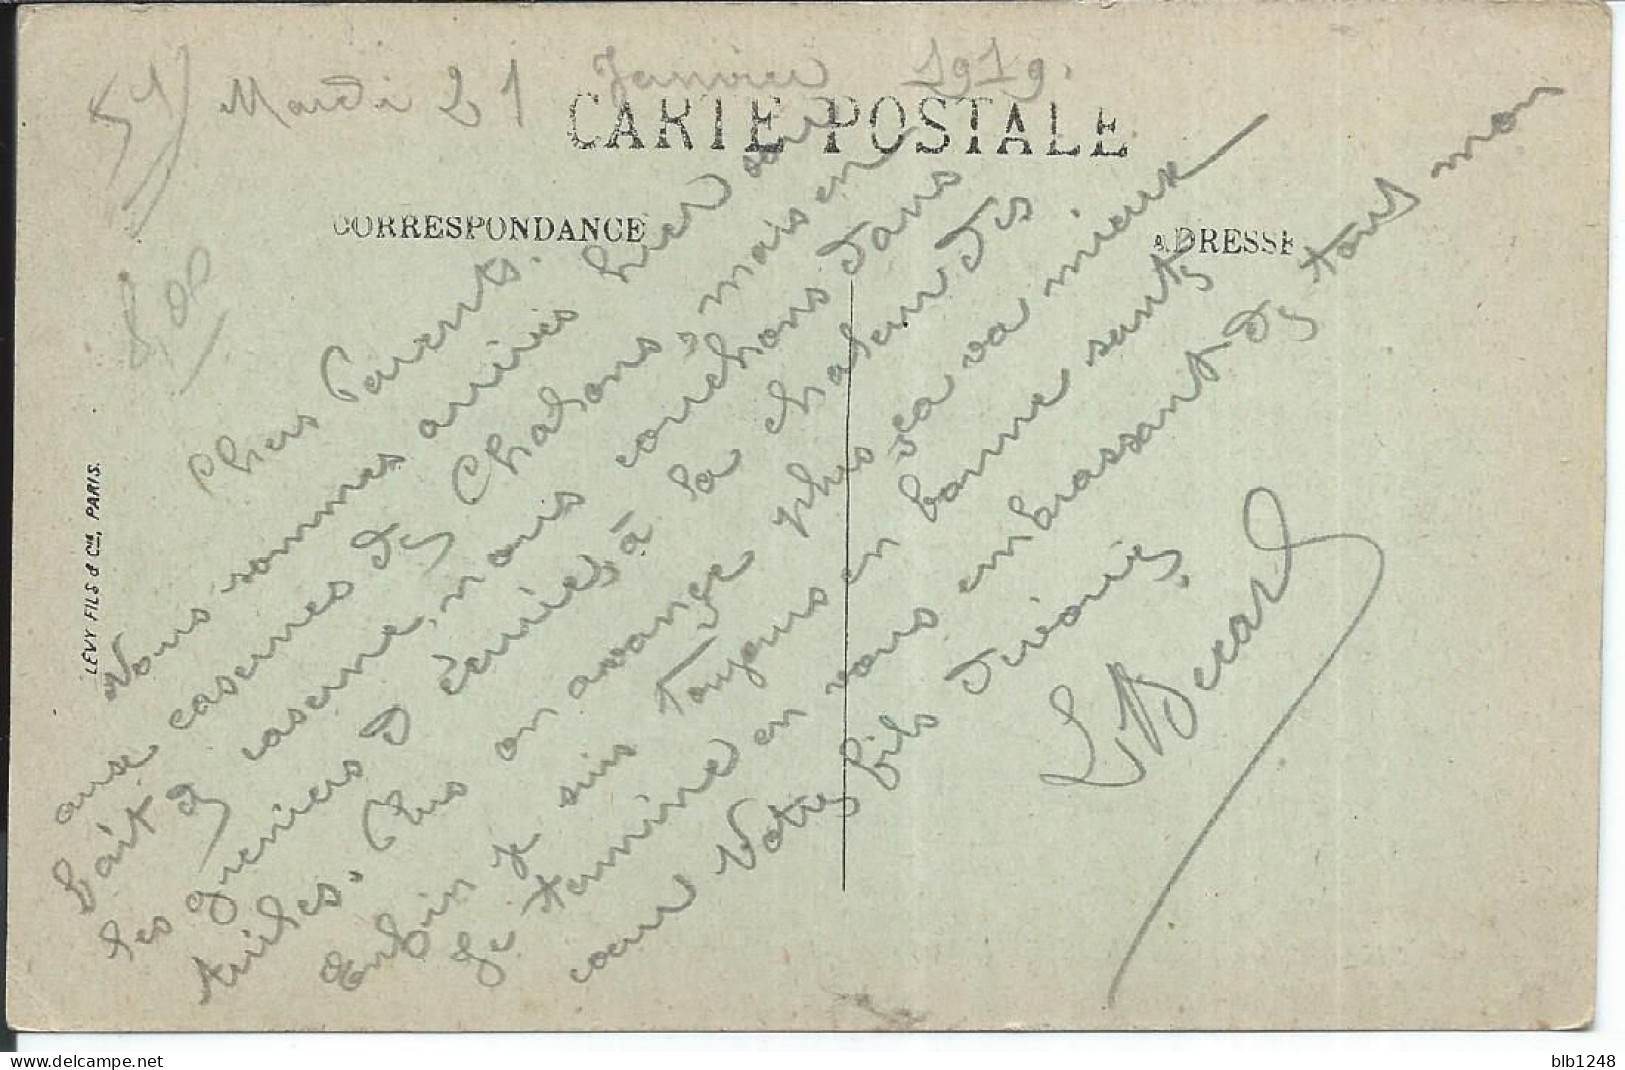 51) Mardi 21 Janvier 1919.
CARTE POSTALE
CORRESPONDANCE
ADRESSE
Chers Parents.
Nous sommes arrivés hier soir
aux casernes de Chalons, mais en
fait de caserne, nous couchons dans
les greniers derrière à la chaleur des
tuiles. Plus on avance plus ça va mieux
Enfin je suis toujours en bonne santé
Je termine en vous embrassant de tout mon
cœur Votre fils dévoué.
L Becard
LEVY FILS & Cie, PARIS.
blb1248